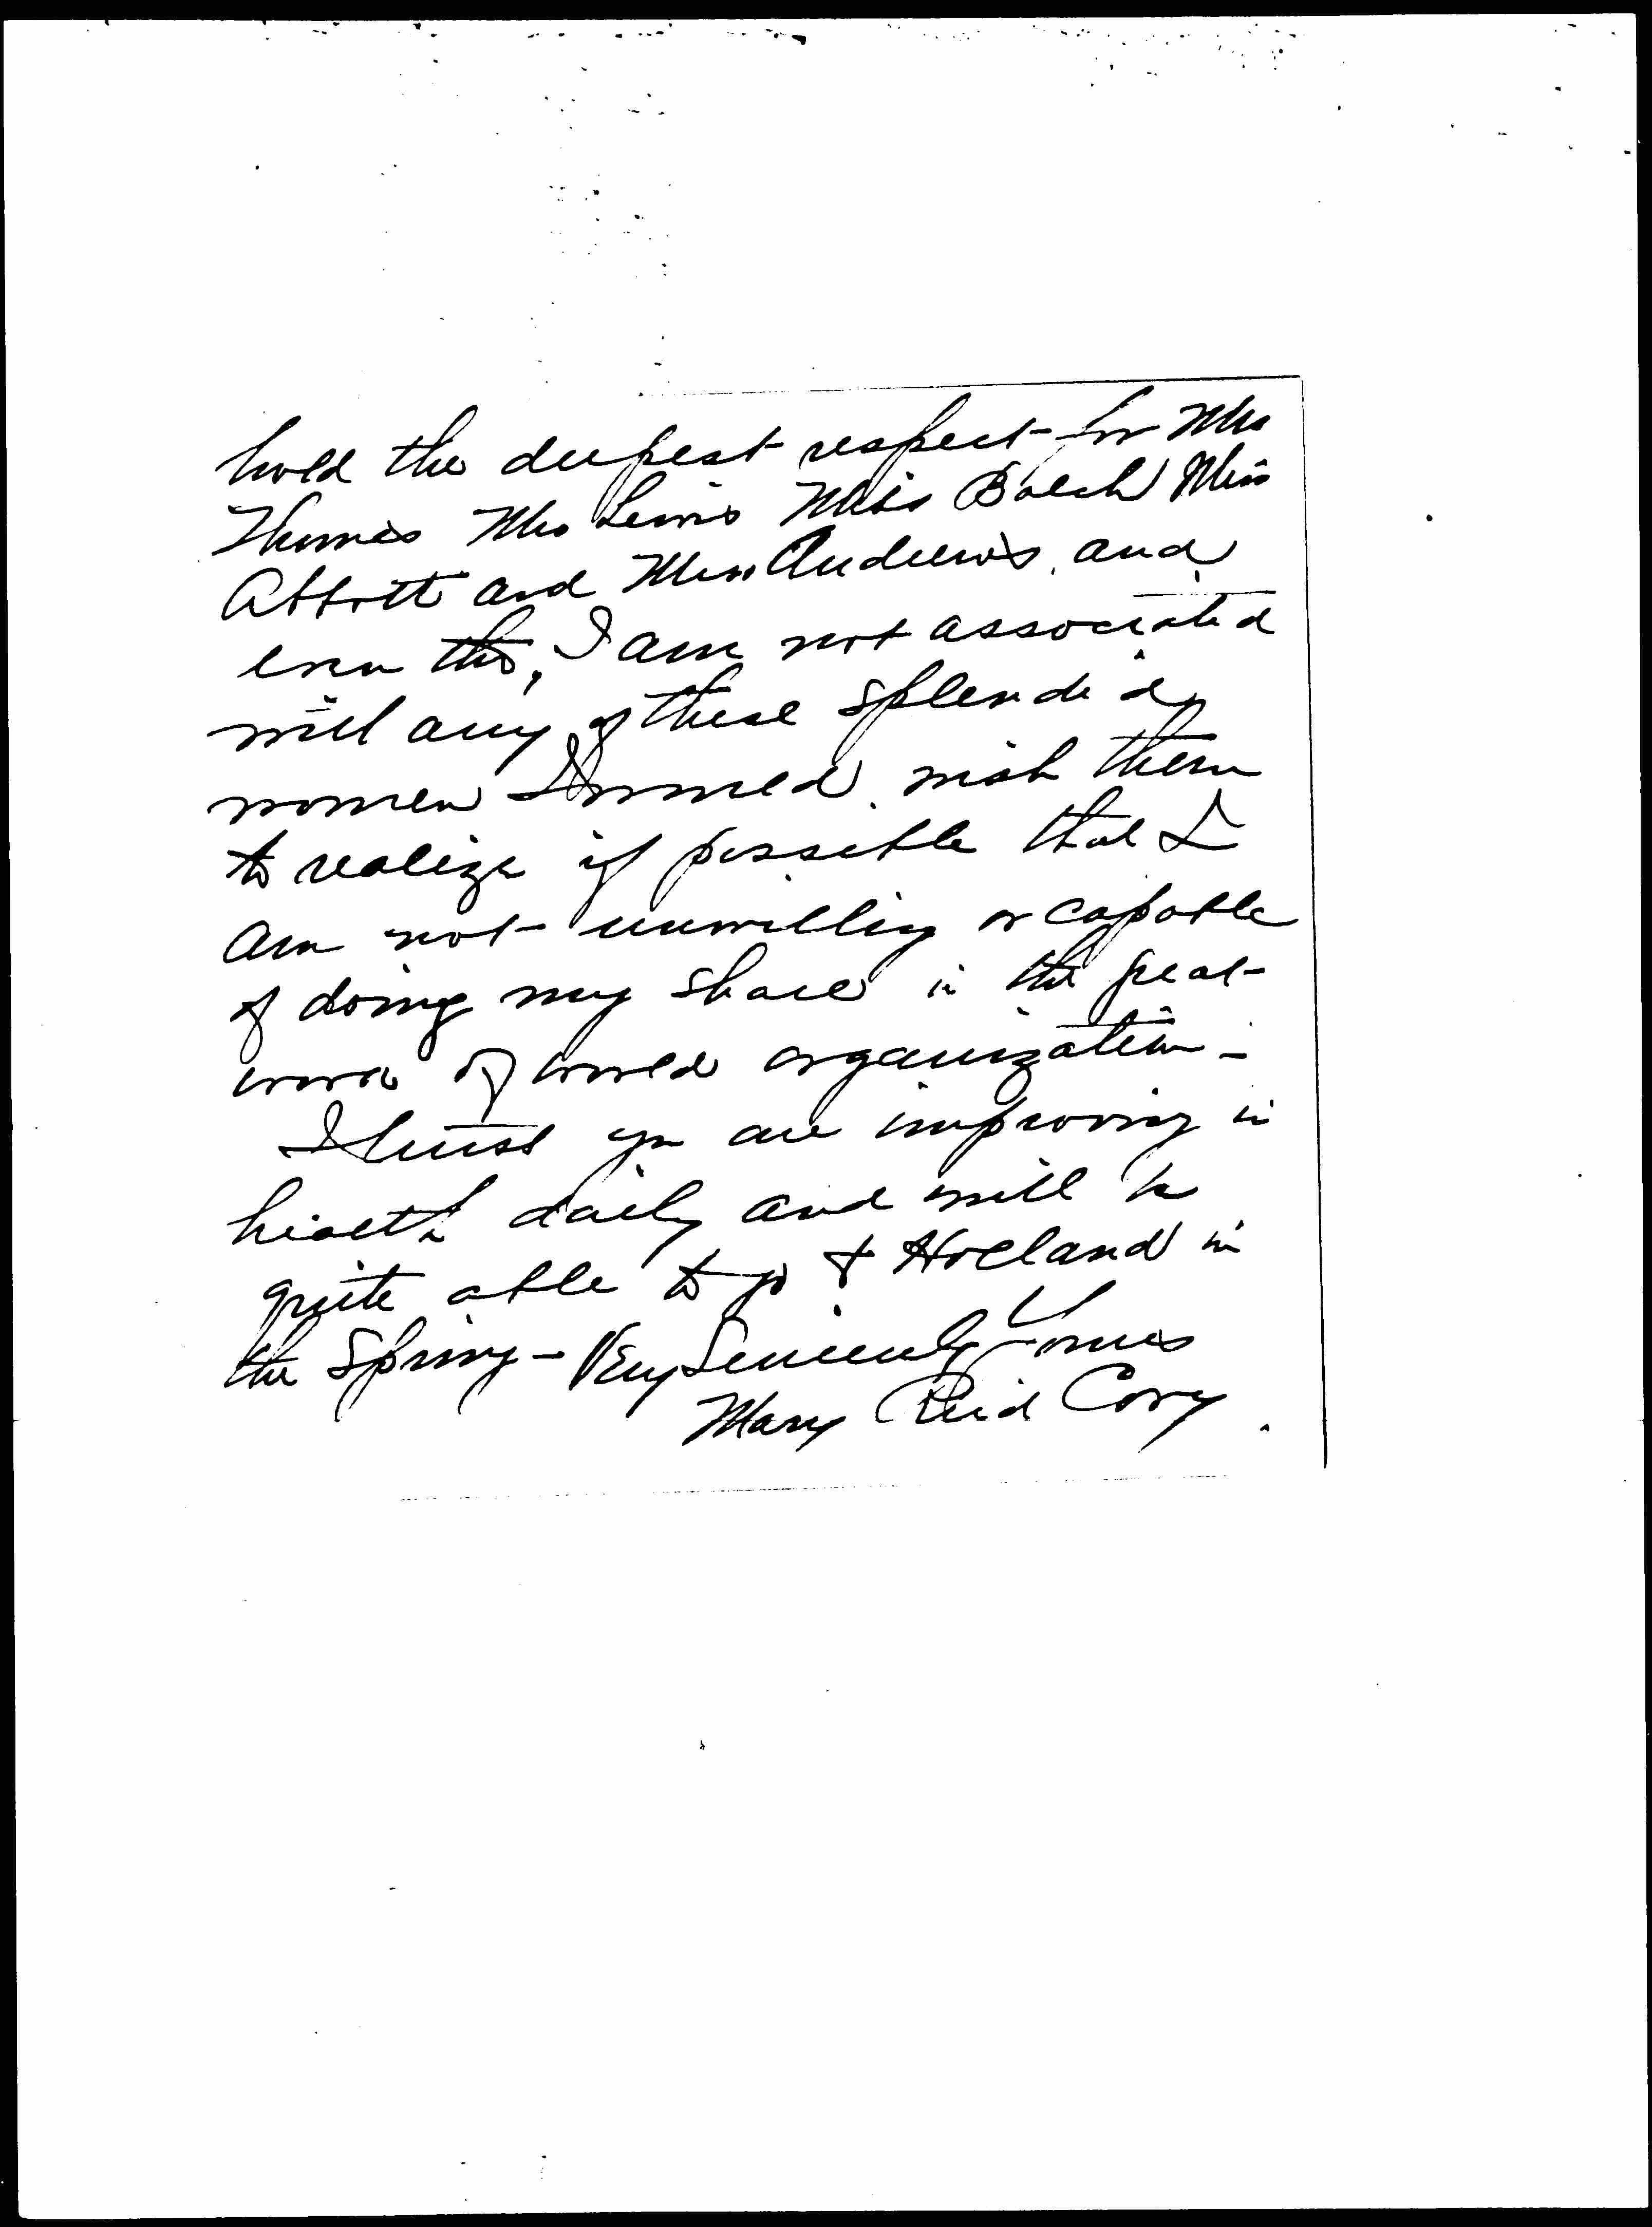 hold the deepest respect for Mrs
Thomas Mrs Lewis Miss Balch Miss
Abbott and Miss Andrews, and
even tho, I am not associated
with any of these splendid
women I would wish them
to realize if possible that I
am not unwilling or capable
of doing my share in the great
work of world organization -
I trust you are improving in
health daily and will be
quite able to go to Holland in
the Spring - Very Sincerely Yours
Mary Reid Cory